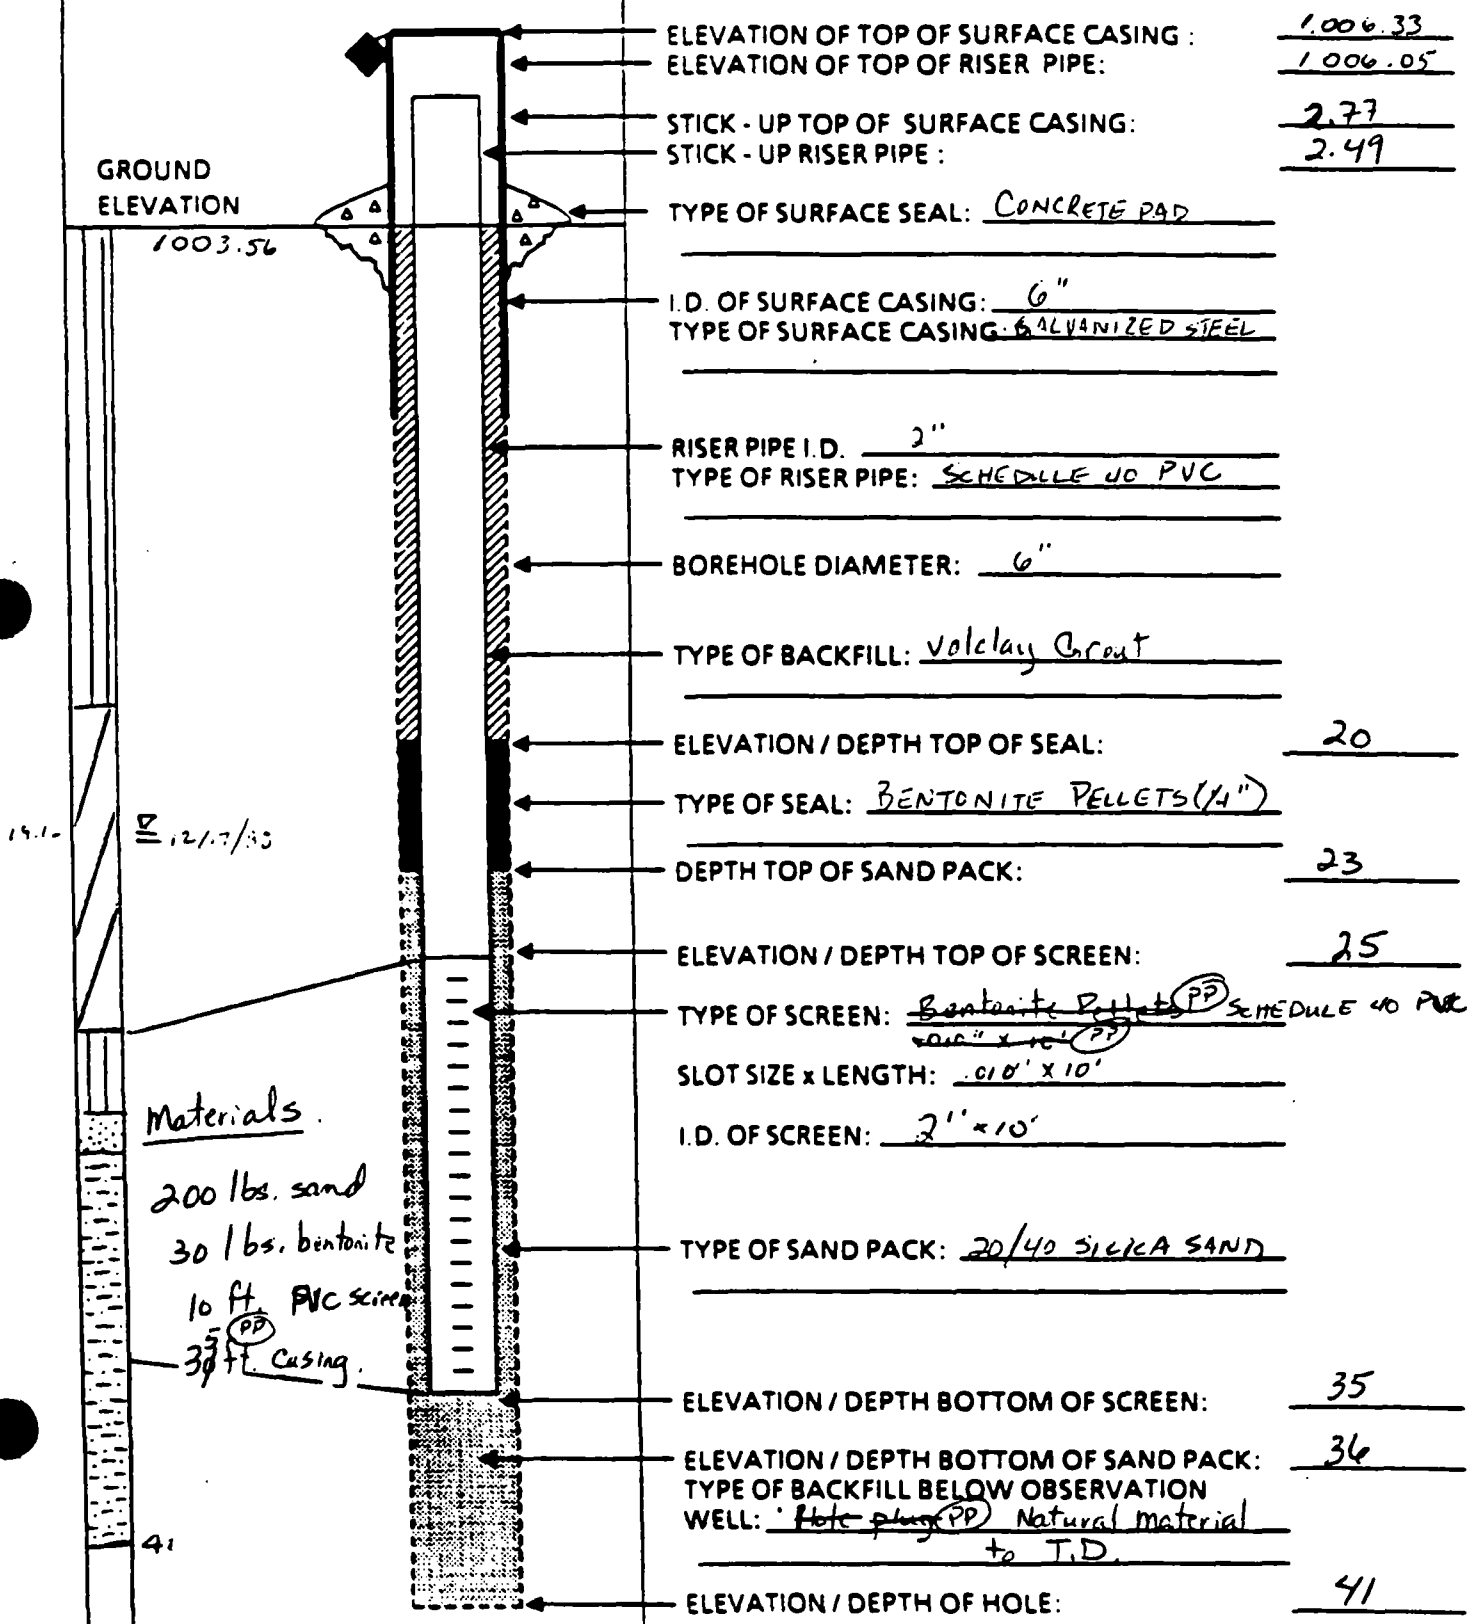 ELEVATION OF TOP OF SURFACE CASING : 1.006.33
ELEVATION OF TOP OF RISER PIPE: 1006.05
STICK - UP TOP OF SURFACE CASING: 2.77
STICK - UP RISER PIPE : 2.49
GROUND
ELEVATION
1003.56
TYPE OF SURFACE SEAL: CONCRETE PAD
I.D. OF SURFACE CASING: 6"
TYPE OF SURFACE CASING: GALVANIZED STEEL
RISER PIPE I.D. 2"
TYPE OF RISER PIPE: SCHEDULE 40 PVC
BOREHOLE DIAMETER: 6"
TYPE OF BACKFILL: Volclay Grout
ELEVATION / DEPTH TOP OF SEAL: 20
TYPE OF SEAL: BENTONITE PELLETS (1/4")
DEPTH TOP OF SAND PACK: 23
ELEVATION / DEPTH TOP OF SCREEN: 25
TYPE OF SCREEN: Bentonite Pellets PP SCHEDULE 40 PVC
.010" x 10' PP
SLOT SIZE x LENGTH: .010' x 10'
I.D. OF SCREEN: 2" x 10'
Materials.
200 lbs. sand
30 lbs. bentonite
10 ft. PVC screen
PP
ft. Casing.
TYPE OF SAND PACK: 20/40 SILICA SAND
ELEVATION / DEPTH BOTTOM OF SCREEN: 35
ELEVATION / DEPTH BOTTOM OF SAND PACK: 36
TYPE OF BACKFILL BELOW OBSERVATION
WELL: Hole plug PP Natural material
to T.D.
41
ELEVATION / DEPTH OF HOLE: 41